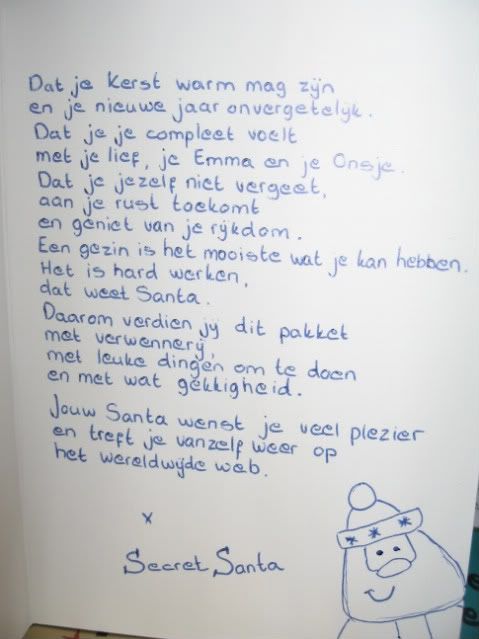 Dat je Kerst warm mag zijn
en je nieuwe jaar onvergetelijk.
Dat je je compleet voelt
met je lief, je Emma en je Onsje.
Dat je jezelf niet vergeet,
aan je rust toekomt
en geniet van je rijkdom.
Een gezin is het mooiste wat je kan hebben.
Het is hard werken,
dat weet Santa.
Daarom verdien jij dit pakket
met verwennerij,
met leuke dingen om te doen
en met wat gekkigheid.
Jouw Santa wenst je veel plezier
en treft je vanzelf weer op
het wereldwijde web.
x
Secret Santa